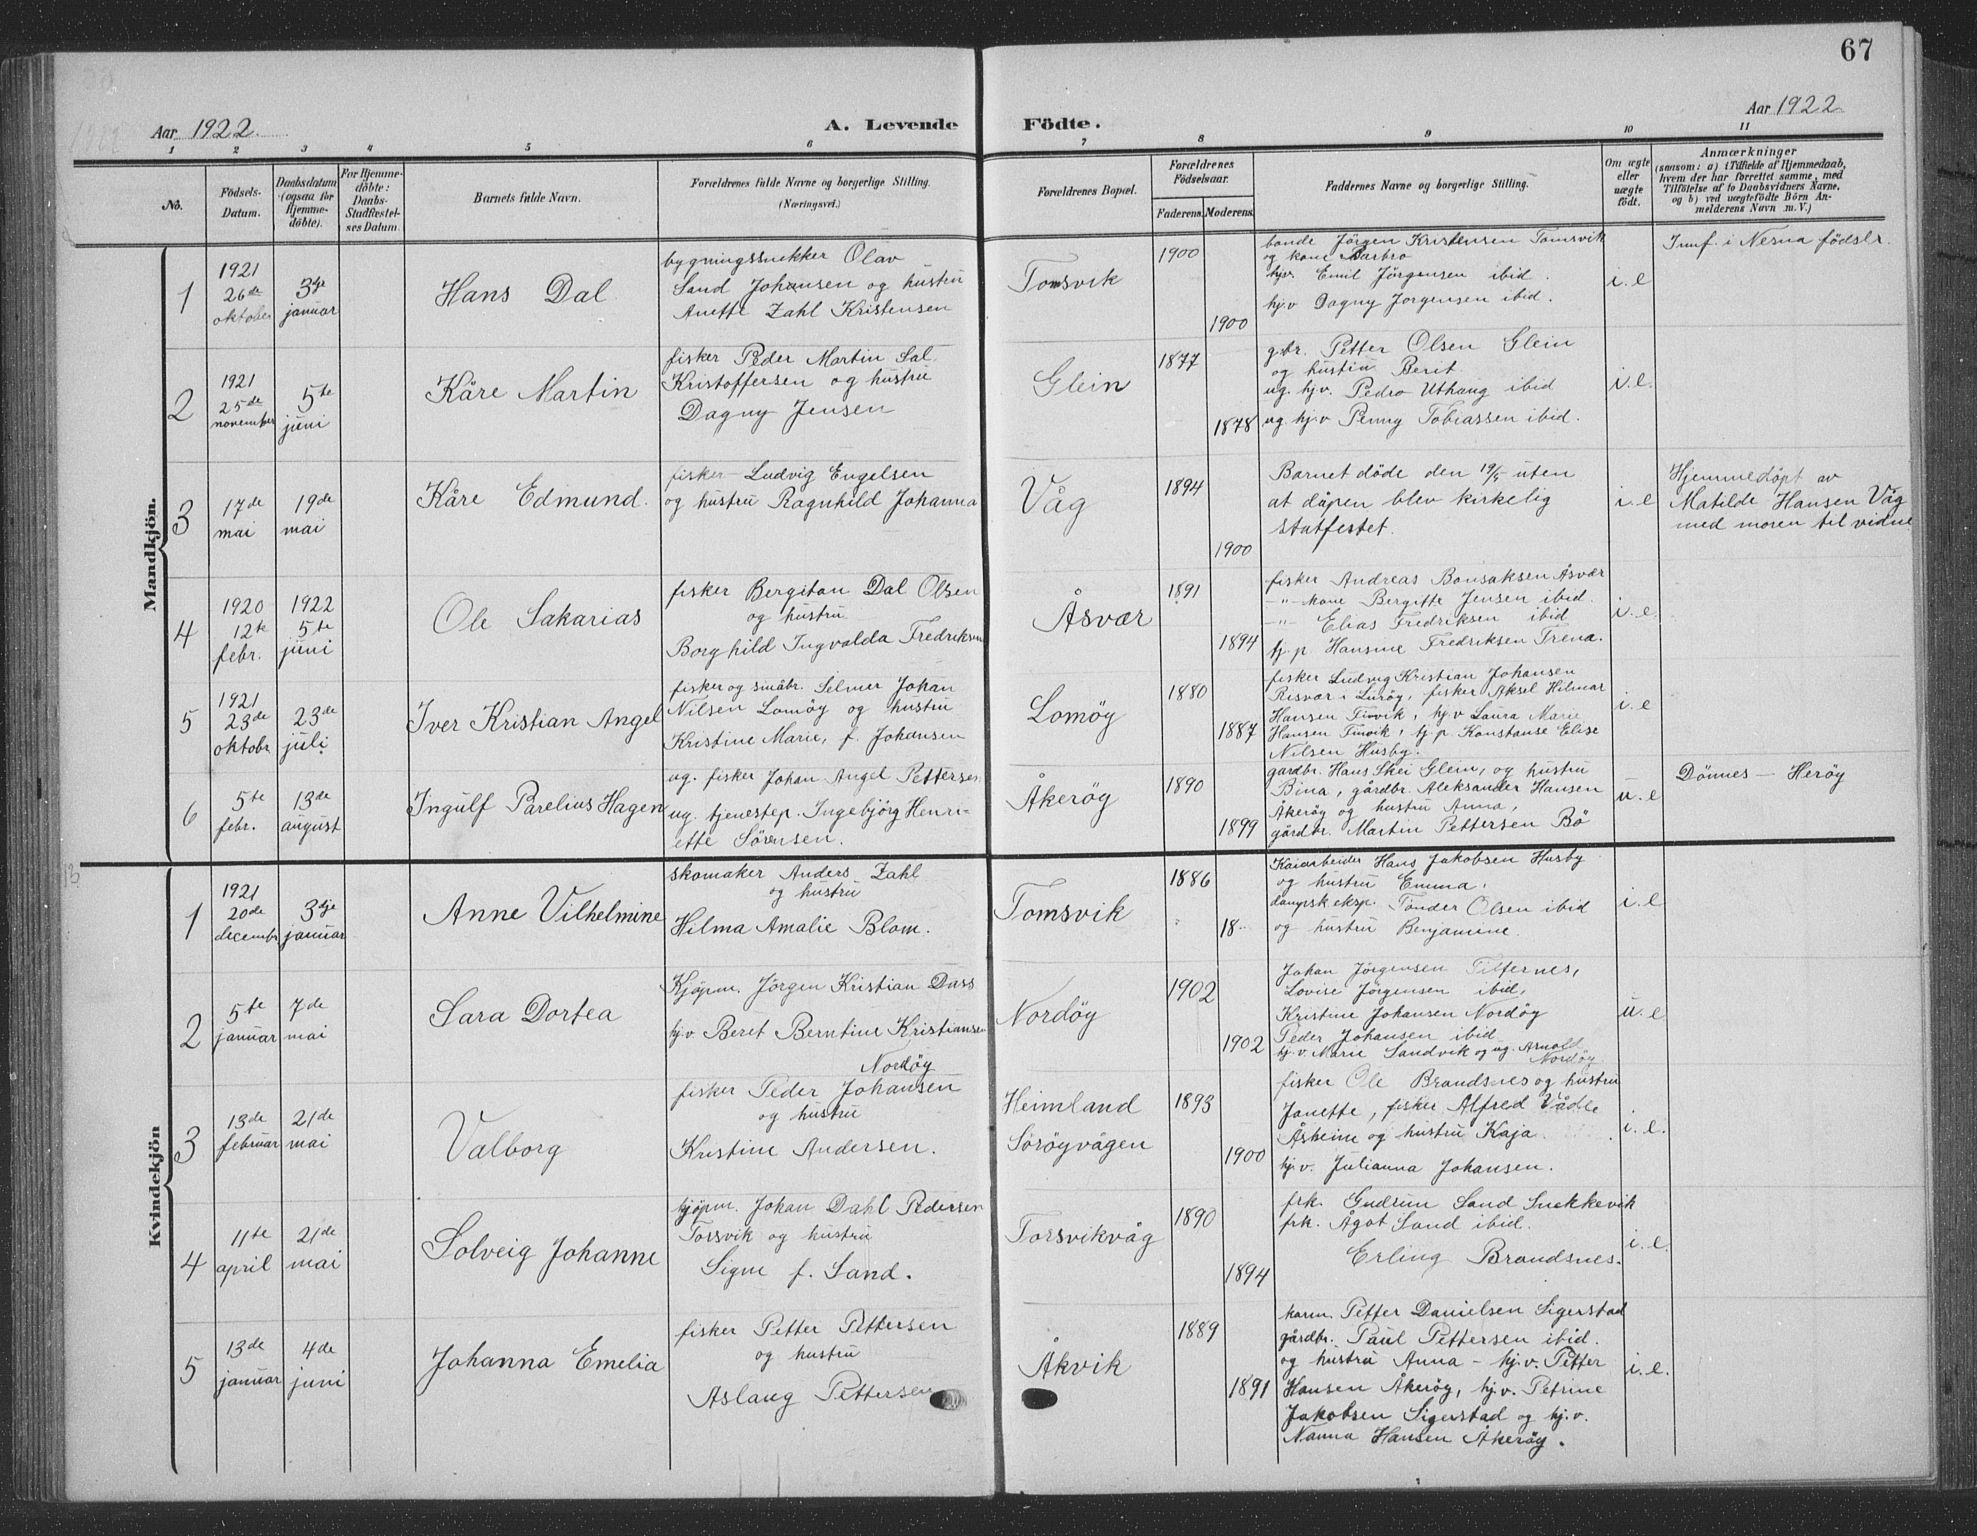 67
Aar 1922.
A. Levende
Födte.
Aar 1922
1 2 3 4 5 6 7 8 9 10 11
No.
Födsels-
Datum.
Daabsdatum
(ogsaa for
Hjemme-
döbte).
For Hjemme-
döbte:
Daabs-
Stadfæstel-
ses Datum.
Barnets fulde Navn.
Forældrenes fulde Navne og borgerlige Stilling.
(Næringsvei.)
Forældrenes Bopæl.
Forældrenes
Födselsaar.
Faderens.
Moderens.
Faddernes Navne og borgerlige Stilling.
Om ægte
eller
uægte
født.
Anmærkninger
(saasom: a) i Tilfælde af Hjemmedaab,
hvem der har forrettet samme, med
Tilföielse af to Daabsvidners Navne,
og b) ved uægtefödte Börn An-
melderens Navn m. V.)
Mandkjön.
1
1921
26de
oktober
3dje
januar
Hans Dal
bygningssnekker Olav
Sand Johansen og hustru
Anette Zahl Kristensen
Tomsvik
1900
1900
bonde Jörgen Kristensen Tomsvik
og kone Barbro
hjv. Emil Jörgensen ibid.
hj.v Dagny Jorgensen ibid.
i. e
Innf. i Nesna födselr.
2
1921
25de
november
5te
juni
Kåre Martin
fisker Peder Martin Sal
Kristoffersen og hustru
Dagny Jensen
Glein
1877
1878
gbr. Petter Olsen Glein
og hustru Berit
ug. hj.v. Pedro Uthaug ibid
ug. hj.v Penny Tobiassen ibid.
i. e.
3
17de
mai
19de
mai
Kåre Edmund.
fisker Ludvig Engelsen
og hustru Ragnhild Johanna
Våg
1894
1900
Barnet döde den 19/5 uten
at dåpen blev kirkelig
statfestet.
i. e
Hjemmedöpt av
Matilde Hansen Våg
med moren til vidne
4
1920
12te
febr.
1922
5te
juni
Ole Sakarias
fisker Bergiton Dal Olsen
og hustru
Borghild Ingvalda Fredriksen
Åsvær
1891
1894
fisker Andreas Bonsaksen Åsvær
-"- kone Bergitte Jensen ibid.
-"- Elias Fredriksen ibid
tj. p Hansine Fredriksen Trena.
i. e.
5
1921
23de
oktobr
23de
juli
Iver Kristian Angel
fisker og småbr. Selmer Johan
Nilsen Lomöy og hustru
Kristine Marie, f. Johansen
Lomöy
1880
1887
fisker Ludvig Kristian Johansen
Risvær i Luröy, fisker Aksel Hilmar
Hansen Finvik, hj.v Laura Marie
Hansen Finvik, tj. p. Konstanse Elise
Nilsen Husby.
i. e
6
5te
febr.
13de
august
Ingulf Parelius Hagen
ug. fisker Johan Angel Pettersen
ug. tjenestep. Ingebjörg Henri-
ette Sörensen.
Åkeröy
1890
1899
gårdbr. Hans Skei Glein, og hustru
Bina, gårdbr. Aleksander Hansen
Åkeröy og hustru Anna,
gårdbr. Martin Pettersen Bö
u. e
Dönnes – Heröy
Kvindekjön
1
1921
20de
decembr
3dje
januar
Anne Vilhelmine
skomaker Anders Zahl
og hustru
Hilma Amalie Blom.
Tomsvik
1886
18
Kaiarbeider Hans Jakobsen Husby
og hustru Emma,
dampsk. eksp. Tönder Olsen ibid
og hustru Benjamine.
i. e
2
5te
januar
7de
mai
Sara Dortea
Kjöpm. Jörgen Kristian Dass
hj.v. Beret Berntine Kristiansen
Nordöy
Nordöy
1902
1902
Johan Jörgensen
Lovise Jörgensen ibid,
Kristine Johansen Nordöy
Peder Johansen ibid
hj.v. Marie Sandvik og ug. Arnold
Nordöy
u. e
3
13de
februar
21de
mai
Valborg
fisker Peder Johansen
og hustru
Kristine Andersen.
Heimland
Söröyvågen
1893
1900
fisker Ole Brandsnes og hustru
Janette, fisker Alfred
Åsheim og hustru Kaja
hj.v. Julianna Johansen.
i. e.
4
11te
april
21de
mai
Solveig Johanne
kjöpm. Johan Dahl Pedersen
Torsvik og hustru
Signe f. Sand.
Torsvikvåg
1890
1894
frk. Gudrun Sand Snekkevik
frk. Ågot Sand ibid.
Erling Brandsnes.
i. e.
5
13de
januar
4de
juni
Johanna Emelia
fisker Petter Pettersen
og hustru
Aslaug Pettersen
Åkvik
1889
1891
Petter Danielsen Sigerstad
gårdbr. Paul Pettersen ibid.
og hustru Anna – hj.v. Petter
Hansen Åkeröy, hj.v. Petrine
Jakobsen Sigerstad og hj.v.
Nanna Hansen Åkeröy.
i. e.